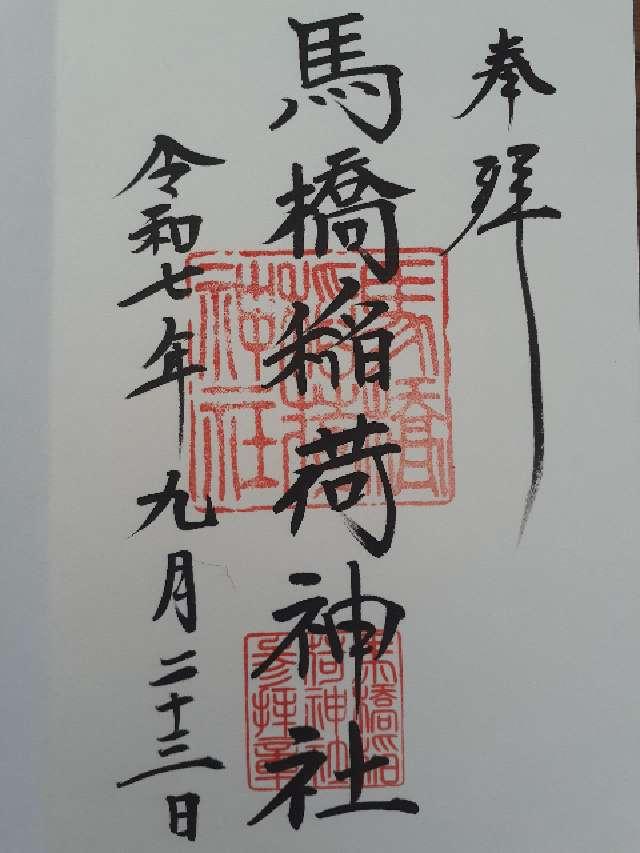 奉拝
馬橋稲荷神社
令和七年九月二十三日
馬橋稲荷神社
馬橋稲荷神社参拝章